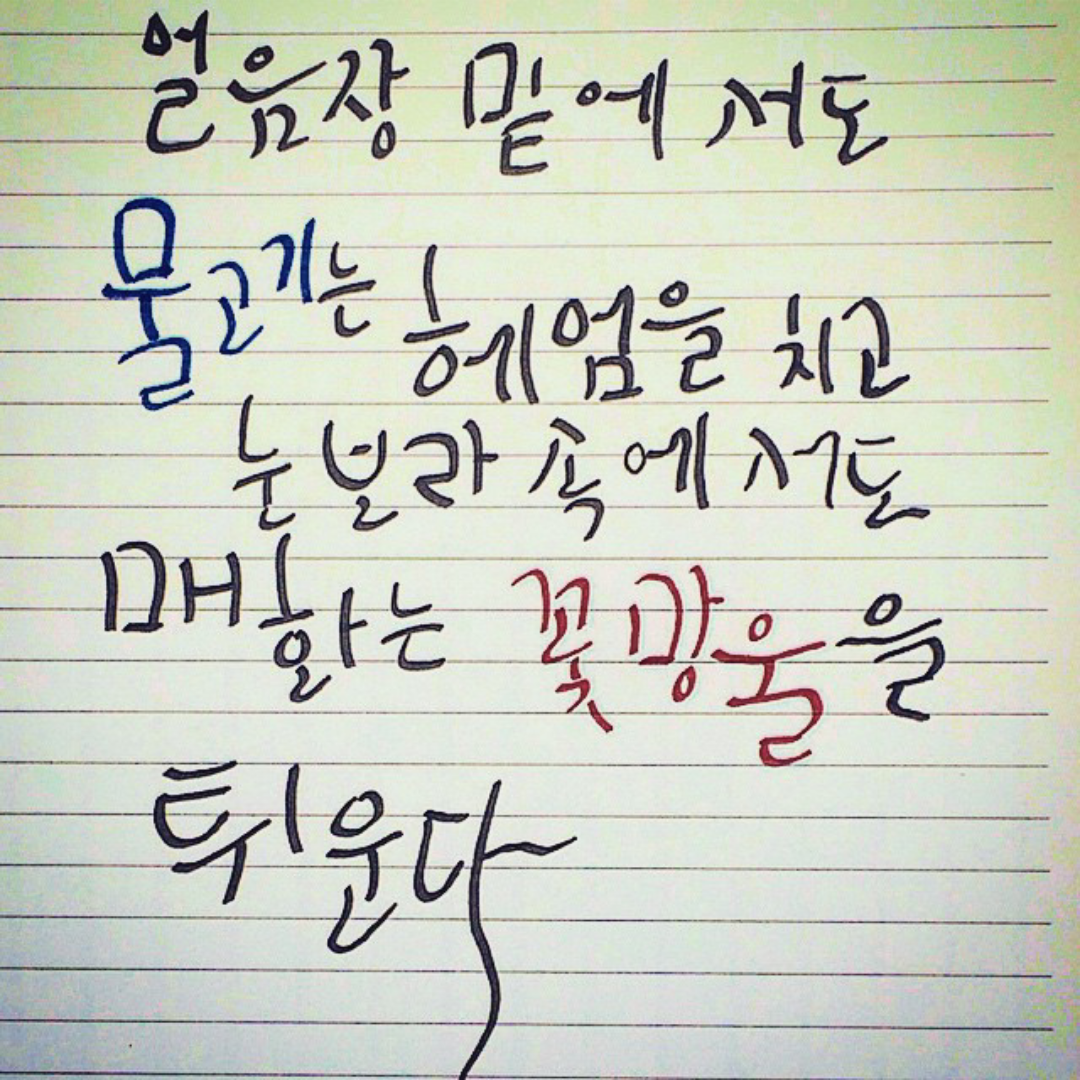 얼음장 밑에서도
물고기는 헤엄을 치고
눈보라 속에서도
매화는 꽃망울을
튀운다